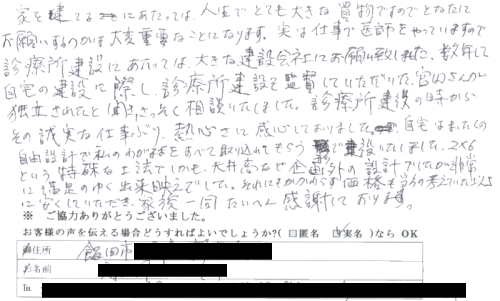 家を建てるにあたっては、人生でとても大きな買物ですのでどなたに
お願いするのかは大変重要なことになります。実は仕事で医師をやっていますので
診療所建設にあたっては、大きな建設会社にお願い致しました。数年して
自宅の建設に際し、診療所建設を監督していただいた宮内さんが
独立されたと聞き、さっそく相談いたしました。診療所建設の時から
その誠実な仕事ぶり、熱心さに感心しておりました。自宅はまったくの
自由設計で私のわがままをすべて取り入れてもらう形で建設いたしました。2×6
という特殊な工法でしかも、天井高など企画外の設計でしたが非常
に満足のゆく出来映えでした。それにもかかわらず価格も当初考えていた以上
に安くしていただき、家族一同たいへん感謝しております。
※ ご協力ありがとうございました。
お客様の声を伝える場合どうすればよいでしょうか?(□匿名 ☑実名)なら OK
御住所 飯田市
お名前
Tel